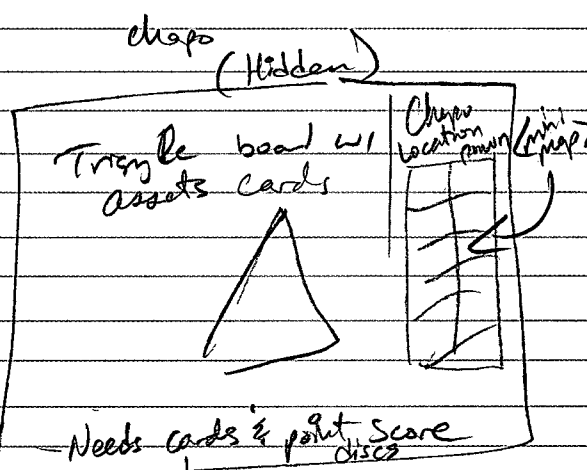 chapo
(Hidden)
Triangle board w/
assets cards
Chapo
Location
pawn
mini
map
Needs cards & point score
discs